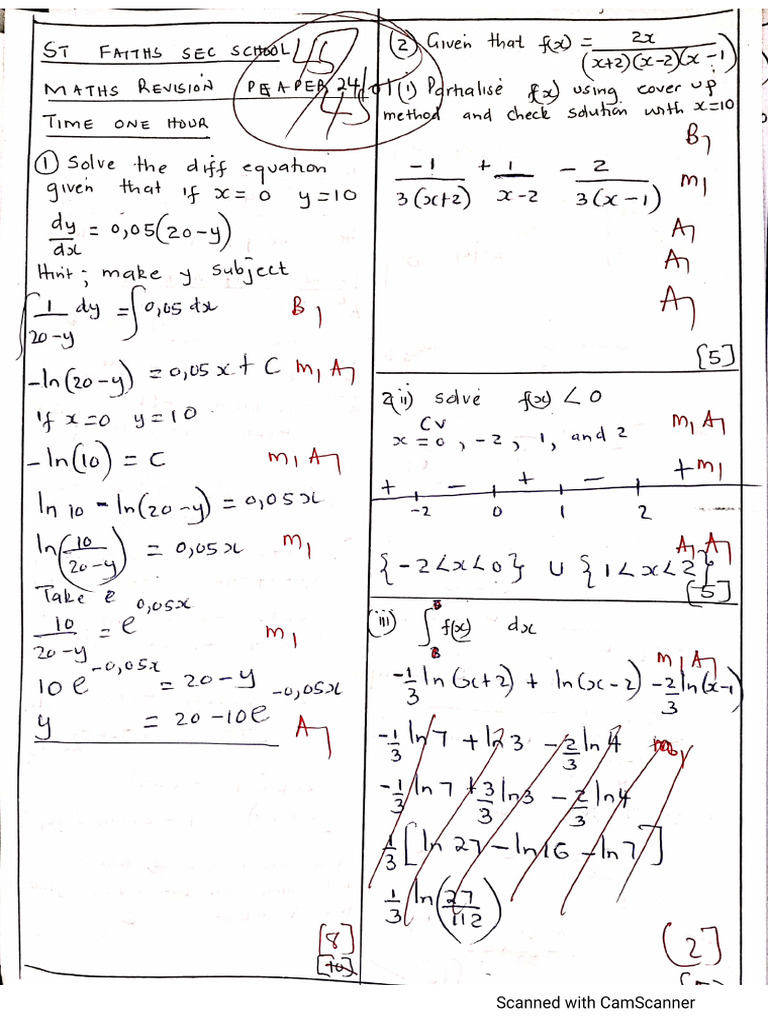 ST FAITHS SEC SCHOOL
MATHS REVISION PEAPER 24
TIME ONE HOUR
45
45
① Solve the diff equation
given that if x = 0 y = 10
dy/dx = 0,05(20-y)
Hint; make y subject
∫ 1/(20-y) dy = ∫ 0,05 dx B1
-ln(20-y) = 0,05x + C M1 A1
if x=0 y=10
-ln(10) = C M1 A1
ln 10 - ln(20-y) = 0,05x
ln(10/(20-y)) = 0,05x M1
Take e
10/(20-y) = e^0,05x M1
10e^-0,05x = 20-y
y = 20-10e^-0,05x A1
[8]
[10]
② Given that f(x) = 2x/((x+2)(x-2)(x-1))
(i) Partialise f(x) using cover up
method and check solution with x=10
B1
-1/(3(x+2)) + 1/(x-2) - 2/(3(x-1)) M1
A1
A1
A1
[5]
2(ii) solve f(x) < 0
CV
x = 0, -2, 1, and 2 M1 A1
+ - + - + M1
-2 0 1 2
A1 A1
{-2<x<0} ∪ {1<x<2}
[5]
(iii) ∫ f(x) dx
M1 A1
-1/3 ln(x+2) + ln(x-2) - 2/3 ln(x-1)
-1/3 ln 7 + ln 3 - 2/3 ln 4
-1/3 ln 7 + 3/3 ln 3 - 2/3 ln 4
1/3 [ln 27 - ln 16 - ln 7]
1/3 ln(27/112)
(2]
Scanned with CamScanner